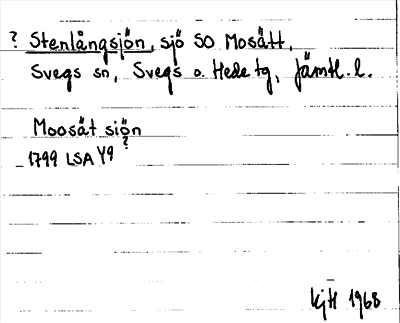 ? Stenlångsjön, sjö SO Mosätt,
Svegs sn, Svegs o. Hede tg, Jämtl. l.
Moosät siön
1799 LSA Y9 ?
KjH 1968